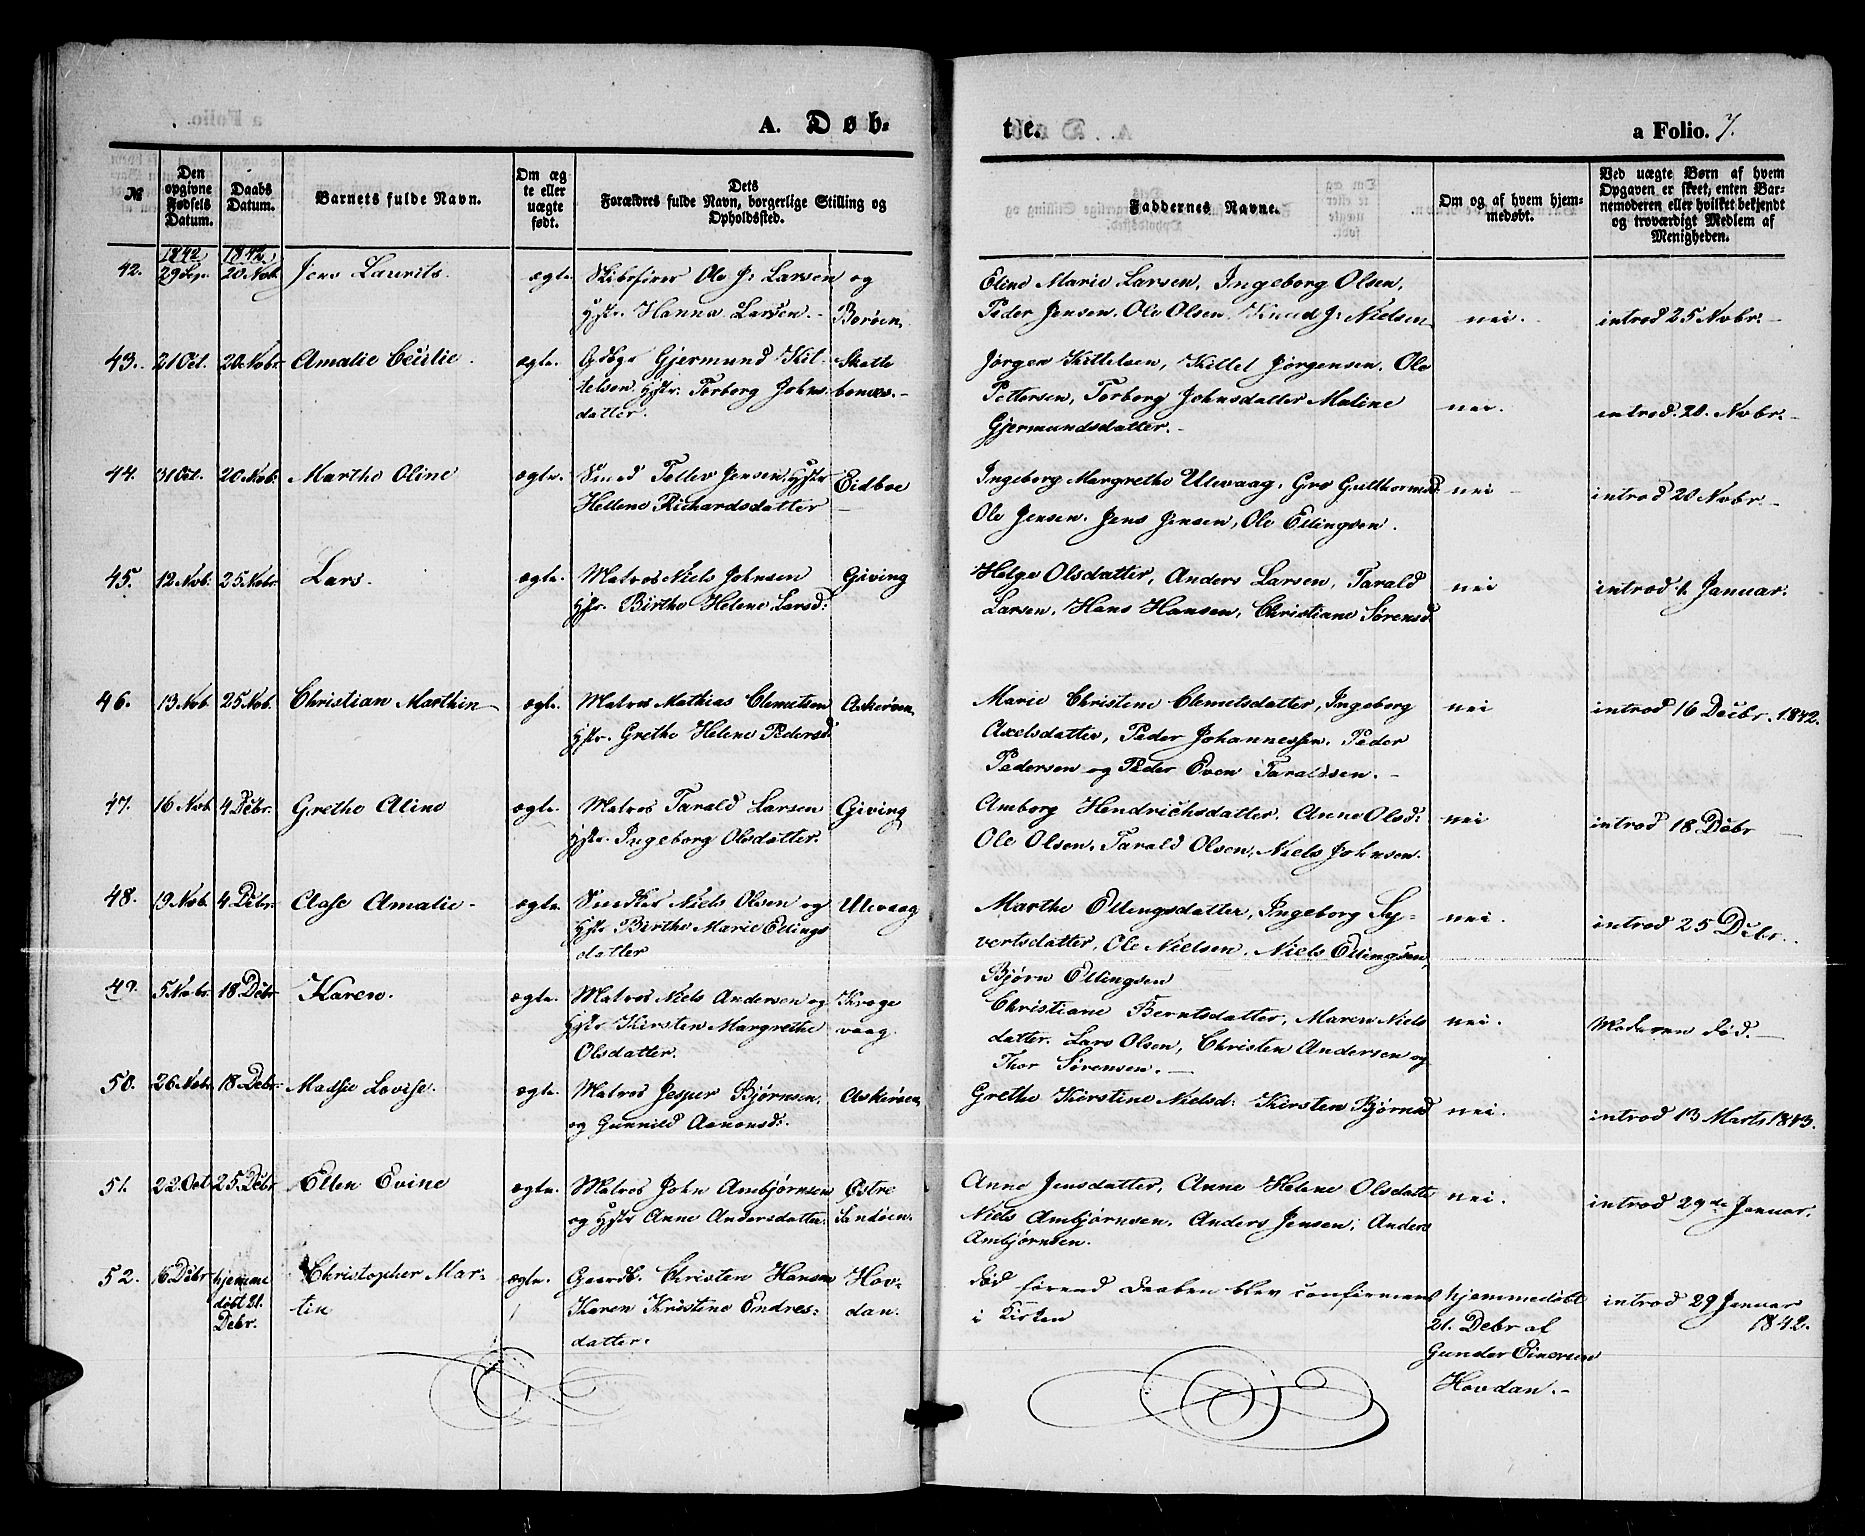 A. Døb-
te.
a Folio. 7.
№
Den opgivne Fødsels Datum.
Daabs Datum.
Barnets fulde Navn.
Om æg te eller uægte født.
Dets
Forældres fulde Navn, borgerlige Stilling og
Opholdssted.
Faddernes Navne.
Om og af hvem hjem-
medøbt.
Ved uægte Børn af hvem
Opgaven er skeet, enten Bar-
nemoderen eller hvilket bekjendt
og troværdigt Medlem af
Menigheden.
1842 1842
42. 29 Sep. 20. Nob. Jens Laurits. ægte. Skibsfører Ole J: Larsen og
Hstr. Hanna Larsen. - Borøen.
Eline Marie Larsen, Ingeborg Olsen,
Peder Jensen. Ole Olsen. Knud J: Nielsen
nei. introd 25 Nobr. -
43. 21 Oct. 20. Nobr. Amalie Cecilie. ægte. Gdbgr Gjermund Kit- Skotte
telsen. Hstr. Torborg Johns- bonæs. -
datter.
Jørgen Kittelsen, Kittel Jørgensen. Ole
Pettersen, Torborg Johnsdatter Maline
Gjermundsdatter. -
nei. introd. 20. Nobr. -
44. 31 Oct. 20 Nob. Marthe Oline ægte. Smed Tellev Jensen, Hstr Eidboe
Hellene Richardsdatter -
Ingeborg Margrethe Ulevaag, Gro Gutthormsd.
Ole Jensen. Jens Jensen, Ole Ellingsen.
nei - introd 20 Nobr. -
45. 12 Nob. 25 Nobr. Lars. ægte. Matros Niels Johnsen Giving
Hstr. Birthe Helene Larsd:
Helge Olsdatter, Anders Larsen, Tarald
Larsen, Hans Hansen, Christiane Sørensd.
nei introd 1. Januar.
46. 13 Nob. 25 Nob. Christian Marthin ægte. Matros Mathias Clemetsen Askerøen
Hstr. Grethe Helene Pedersd:
Marie Christene Clemetsdatter, Ingeborg
Axelsdatter, Peder Johannessen. Peder
Pedersen og Peder Even Taraldsen. -
nei introd 16 Decbr. 1842.
47. 16 Nob. 4 Debr. Grethe Aline ægte. Matros Tarald Larsen Giving
Hstr. Ingeborg Olsdatter.
Amborg Hendrichsdatter. Anne Olsd:
Ole Olsen. Tarald Olsen, Niels Johnsen.
nei introd 18. Debr -
48. 19 Nob. 4 Debr. Aase Amalie - ægte. Snedker Niels Olsen og Ulevaag
Hstr Birthe Marie Ellings
datter
Marthe Ellingsdatter, Ingeborg Sy-
vertsdatter, Ole Nielsen. Niels Ellingsen,
Bjørn Ellingsen
nei. introd 25 Debr.
49. 5 Nobr. 18 Debr Karen. ægte. Matros Niels Andersen og Krage
Hstr Kirsten Margrethe vaag.
Olsdatter.
Christiane Berntsdatter, Maren Niels
datter. Lars Olsen, Christen Andersen og
Thor Sørensen. -
nei. Moderen død. -
50. 26 Nob. 18 Debr. Madsie Lovise. ægte. Matros Jesper Bjørnsen. Askerøen
og Gunnild Aanonsd:.
Grethe Kirstine Nielsd: Kirsten Bjørnsd
nei. introd 13 Marts 1843.
51. 22. Oct 25. Debr Ellen Evine ægte. Matros John Ambjørnsen Østre
og Hstr Anne Andersdatter. Sandøen.
Anne Jensdatter, Anne Helene Olsdatt
Niels Ambjørnsen. Anders Jensen, Anders
Ambjørnsen.
nei. introd 29de Januar.
52. 16 Debr hjemme Christopher Mar- ægte. Gaardb. Christen Hansen Hov-
døbt 21. tin Karen Kristine Endres: dan.
Debr. datter.
død førend Daaben blev confirmeret
i Kirken
hjemmedøbt
21. Debr af
Gunder Einersen
Hovdan. -
introd 29 Januar
1842.